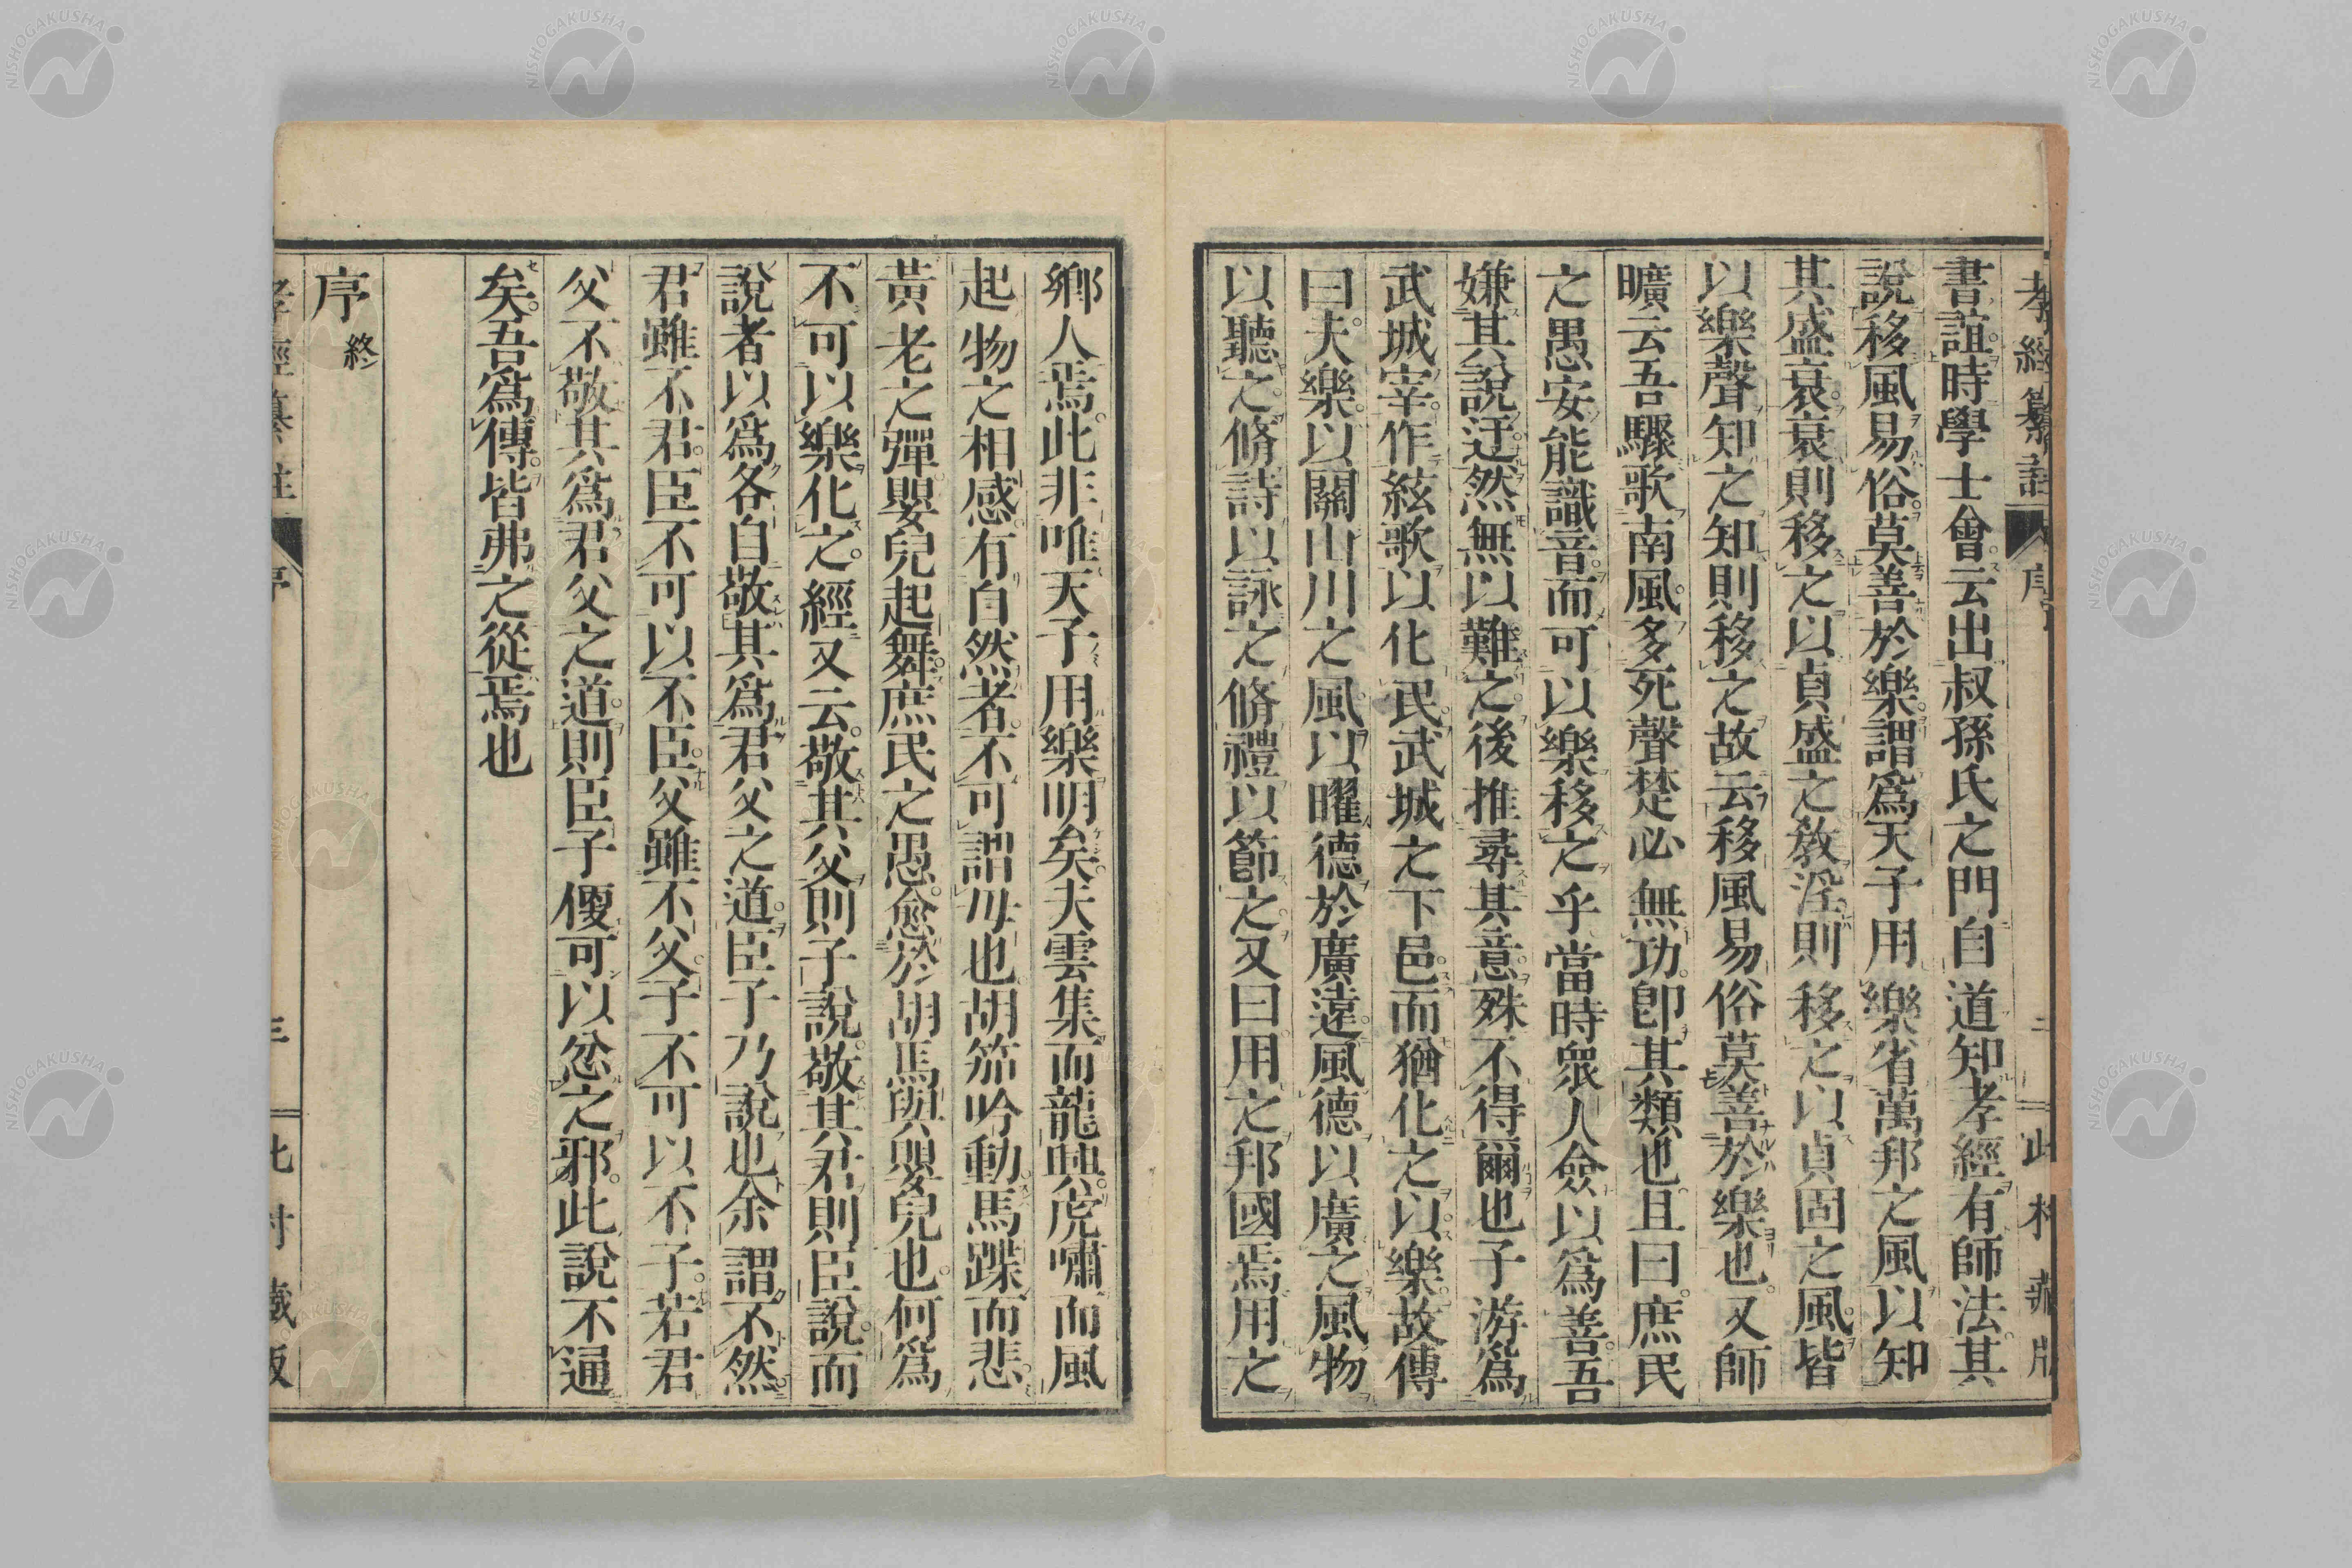 孝經纂註 序 二 此村藏版
書誼時學士會云出叔孫氏之門自道知孝經有師法其
說移風易俗莫善於樂謂爲天子用樂省萬邦之風以知
其盛衰衰則移之以貞盛之敎淫則移之以貞固之風皆
以樂聲知之知則移之故云移風易俗莫善於樂也又師
曠云吾驟歌南風多死聲楚必無功卽其類也且曰庶民
之愚安能識音而可以樂移之乎當時衆人僉以爲善吾
嫌其說迂然無以難之後推尋其意殊不得爾也子游爲
武城宰作絃歌以化民武城之下邑而猶化之以樂故傳
曰夫樂以關山川之風以曜德於廣遠風德以廣之風物
以聽之脩詩以詠之脩禮以節之又曰用之邦國焉用之
鄉人焉此非唯天子用樂明矣夫雲集而龍興虎嘯而風
起物之相感有自然者不可謂毋也胡笳吟動馬蹀而悲
黃老之彈嬰兒起舞庶民之愚愈於胡馬與嬰兒也何爲
不可以樂化之經又云敬其父則子說敬其君則臣說而
說者以爲各自敬其爲君父之道臣子乃說也余謂不然
君雖不君臣不可以不臣父雖不父子不可以不子若君
父不敬其爲君父之道則臣子便可以忿之邪此說不通
矣吾爲傳皆弗之從焉也
序終
孝經纂註 序 三 此村藏版